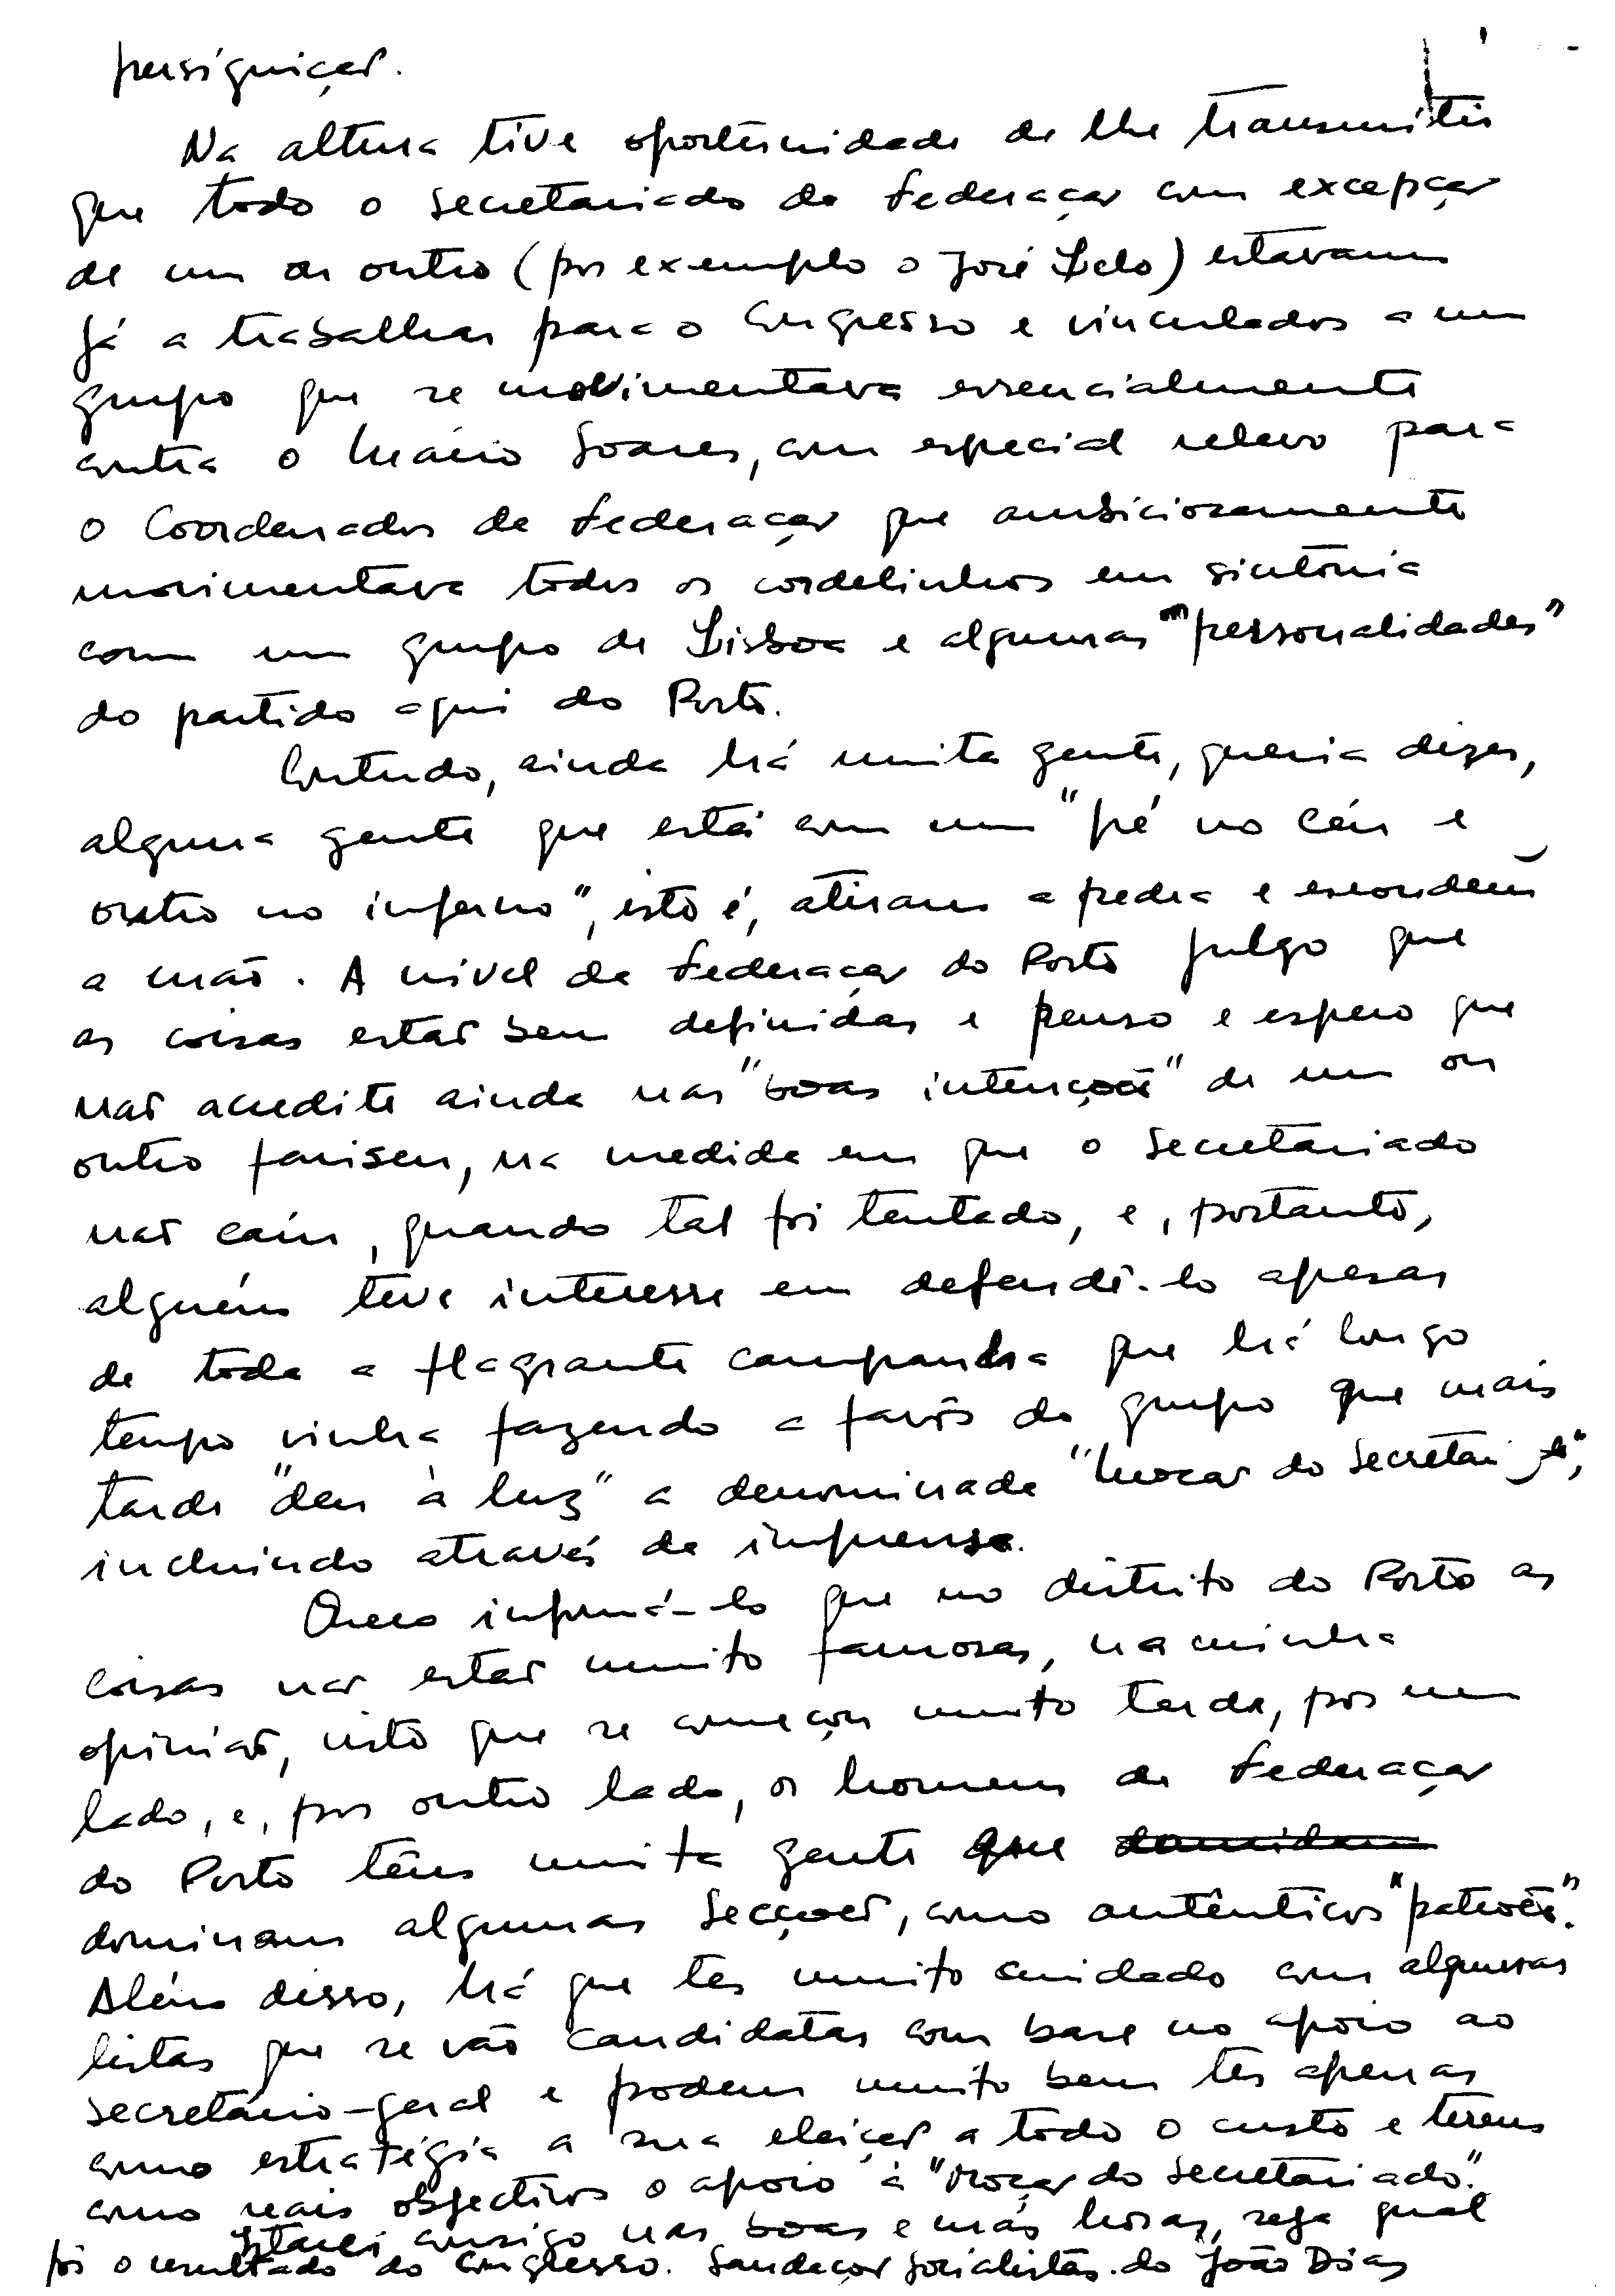 persiguição.
Na altura tive oportunidade de lhe transmitir
que todo o secretariado da Federação com excepção
de um ou outro (por exemplo o José Lelo) estavam
já a trabalhar para o Congresso e vinculados a um
grupo que se movimentava essencialmente
contra o Mário Soares, com especial relevo para
o Coordenador da Federação que ambiciosamente
movimentava todos os cordelinhos em sintonia
com um grupo de Lisboa e algumas "personalidades"
do partido aqui do Porto.
Contudo, ainda há muita gente, queria dizer,
alguma gente que está com um "pé no céu e
outro no inferno", isto é, atiram a pedra e escondem
a mão. A nível da Federação do Porto julgo que
as coisas estão bem definidas e penso e espero que
não acredite ainda nas "boas intenções" de um ou
outro fariseu, na medida em que o Secretariado
não caiu, quando tal foi tentado, e, portanto,
alguém teve interesse em defendê-lo apesar
de toda a flagrante campanha que há longo
tempo vinha fazendo a favor do grupo que mais
tarde "deu à luz" a denominada "Moção do Secretariado",
incluindo através da imprensa.
Quero informá-lo que no distrito do Porto as
coisas não estão muito famosas, na minha
opinião, visto que se começou muito tarde, por um
lado, e, por outro lado, os homens da Federação
do Porto têm muita gente que
dominam algumas Secções, como autênticos "patrões".
Além disso, há que ter muito cuidado com algumas
listas que se vão candidatar com base no apoio ao
secretário-geral e podem muito bem ter apenas
como estratégia a sua eleição a todo o custo e terem
como reais objectivos o apoio à "Moção do Secretariado".
Estarei consigo nas boas e más horas, seja qual
for o resultado do Congresso. Saudações Socialistas do João Dias